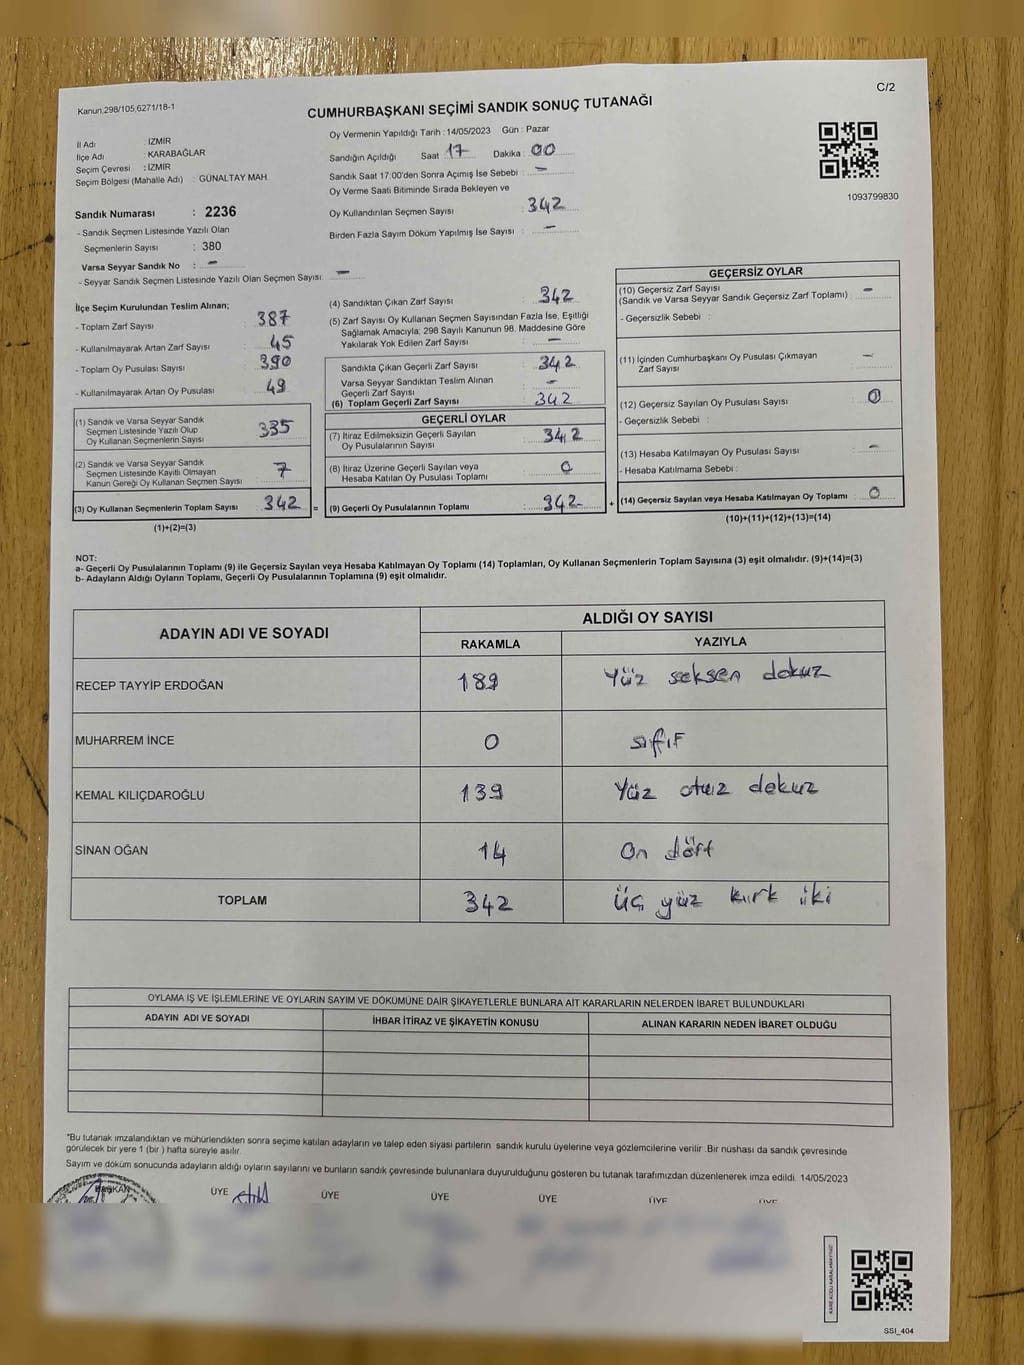 Kanun:298/105,6271/18-1
C/2
CUMHURBAŞKANI SEÇİMİ SANDIK SONUÇ TUTANAĞI
İl Adı : İZMİR
İlçe Adı : KARABAĞLAR
Seçim Çevresi : İZMİR
Seçim Bölgesi (Mahalle Adı) : GÜNALTAY MAH.
Sandık Numarası : 2236
- Sandık Seçmen Listesinde Yazılı Olan
Seçmenlerin Sayısı : 380
Varsa Seyyar Sandık No : -
- Seyyar Sandık Seçmen Listesinde Yazılı Olan Seçmen Sayısı: -
Oy Vermenin Yapıldığı Tarih : 14/05/2023 Gün : Pazar
Sandığın Açıldığı Saat : 17 Dakika : 00
Sandık Saat 17:00'den Sonra Açımış İse Sebebi : -
Oy Verme Saati Bitiminde Sırada Bekleyen ve
Oy Kullandırılan Seçmen Sayısı : 342
Birden Fazla Sayım Döküm Yapılmış İse Sayısı : -
1093799830
İlçe Seçim Kurulundan Teslim Alınan;
- Toplam Zarf Sayısı : 387
- Kullanılmayarak Artan Zarf Sayısı : 45
- Toplam Oy Pusulası Sayısı : 390
- Kullanılmayarak Artan Oy Pusulası : 49
(1) Sandık ve Varsa Seyyar Sandık
Seçmen Listesinde Yazılı Olup
Oy Kullanan Seçmenlerin Sayısı : 335
(2) Sandık ve Varsa Seyyar Sandık
Seçmen Listesinde Kayıtlı Olmayan
Kanun Gereği Oy Kullanan Seçmen Sayısı : 7
(3) Oy Kullanan Seçmenlerin Toplam Sayısı : 342 =
(1)+(2)=(3)
(4) Sandıktan Çıkan Zarf Sayısı : 342
(5) Zarf Sayısı Oy Kullanan Seçmen Sayısından Fazla İse, Eşitliği
Sağlamak Amacıyla; 298 Sayılı Kanunun 98. Maddesine Göre
Yakılarak Yok Edilen Zarf Sayısı : -
Sandıkta Çıkan Geçerli Zarf Sayısı : 342
Varsa Seyyar Sandıktan Teslim Alınan
Geçerli Zarf Sayısı : -
(6) Toplam Geçerli Zarf Sayısı : 342
GEÇERLİ OYLAR
(7) İtiraz Edilmeksizin Geçerli Sayılan
Oy Pusulalarının Sayısı : 342
(8) İtiraz Üzerine Geçerli Sayılan veya
Hesaba Katılan Oy Pusulası Toplamı : 0
(9) Geçerli Oy Pusulalarının Toplamı : 342 +
GEÇERSİZ OYLAR
(10) Geçersiz Zarf Sayısı
(Sandık ve Varsa Seyyar Sandık Geçersiz Zarf Toplamı) : -
- Geçersizlik Sebebi :
(11) İçinden Cumhurbaşkanı Oy Pusulası Çıkmayan
Zarf Sayısı : -
(12) Geçersiz Sayılan Oy Pusulası Sayısı : 0
- Geçersizlik Sebebi :
(13) Hesaba Katılmayan Oy Pusulası Sayısı : -
- Hesaba Katılmama Sebebi :
(14) Geçersiz Sayılan veya Hesaba Katılmayan Oy Toplamı : 0
(10)+(11)+(12)+(13)=(14)
NOT:
a- Geçerli Oy Pusulalarının Toplamı (9) ile Geçersiz Sayılan veya Hesaba Katılmayan Oy Toplamı (14) Toplamları, Oy Kullanan Seçmenlerin Toplam Sayısına (3) eşit olmalıdır. (9)+(14)=(3)
b- Adayların Aldığı Oyların Toplamı, Geçerli Oy Pusulalarının Toplamına (9) eşit olmalıdır.
ADAYIN ADI VE SOYADI ALDIĞI OY SAYISI
RAKAMLA YAZIYLA
RECEP TAYYİP ERDOĞAN 189 Yüz seksen dokuz
MUHARREM İNCE 0 sıfır
KEMAL KILIÇDAROĞLU 139 Yüz otuz dokuz
SİNAN OĞAN 14 On dört
TOPLAM 342 Üç yüz kırk iki
OYLAMA İŞ VE İŞLEMLERİNE VE OYLARIN SAYIM VE DÖKÜMÜNE DAİR ŞİKAYETLERLE BUNLARA AİT KARARLARIN NELERDEN İBARET BULUNDUKLARI
ADAYIN ADI VE SOYADI İHBAR İTİRAZ VE ŞİKAYETİN KONUSU ALINAN KARARIN NEDEN İBARET OLDUĞU
*Bu tutanak imzalandıktan ve mühürlendikten sonra seçime katılan adayların ve talep eden siyasi partilerin sandık kurulu üyelerine veya gözlemcilerine verilir .Bir nüshası da sandık çevresinde
görülecek bir yere 1 (bir ) hafta süreyle asılır.
Sayım ve döküm sonucunda adayların aldığı oyların sayılarını ve bunların sandık çevresinde bulunanlara duyurulduğunu gösteren bu tutanak tarafımızdan düzenlenerek imza edildi. 14/05/2023
BAŞKAN ÜYE ÜYE ÜYE ÜYE ÜYE ÜYE
SSI_404